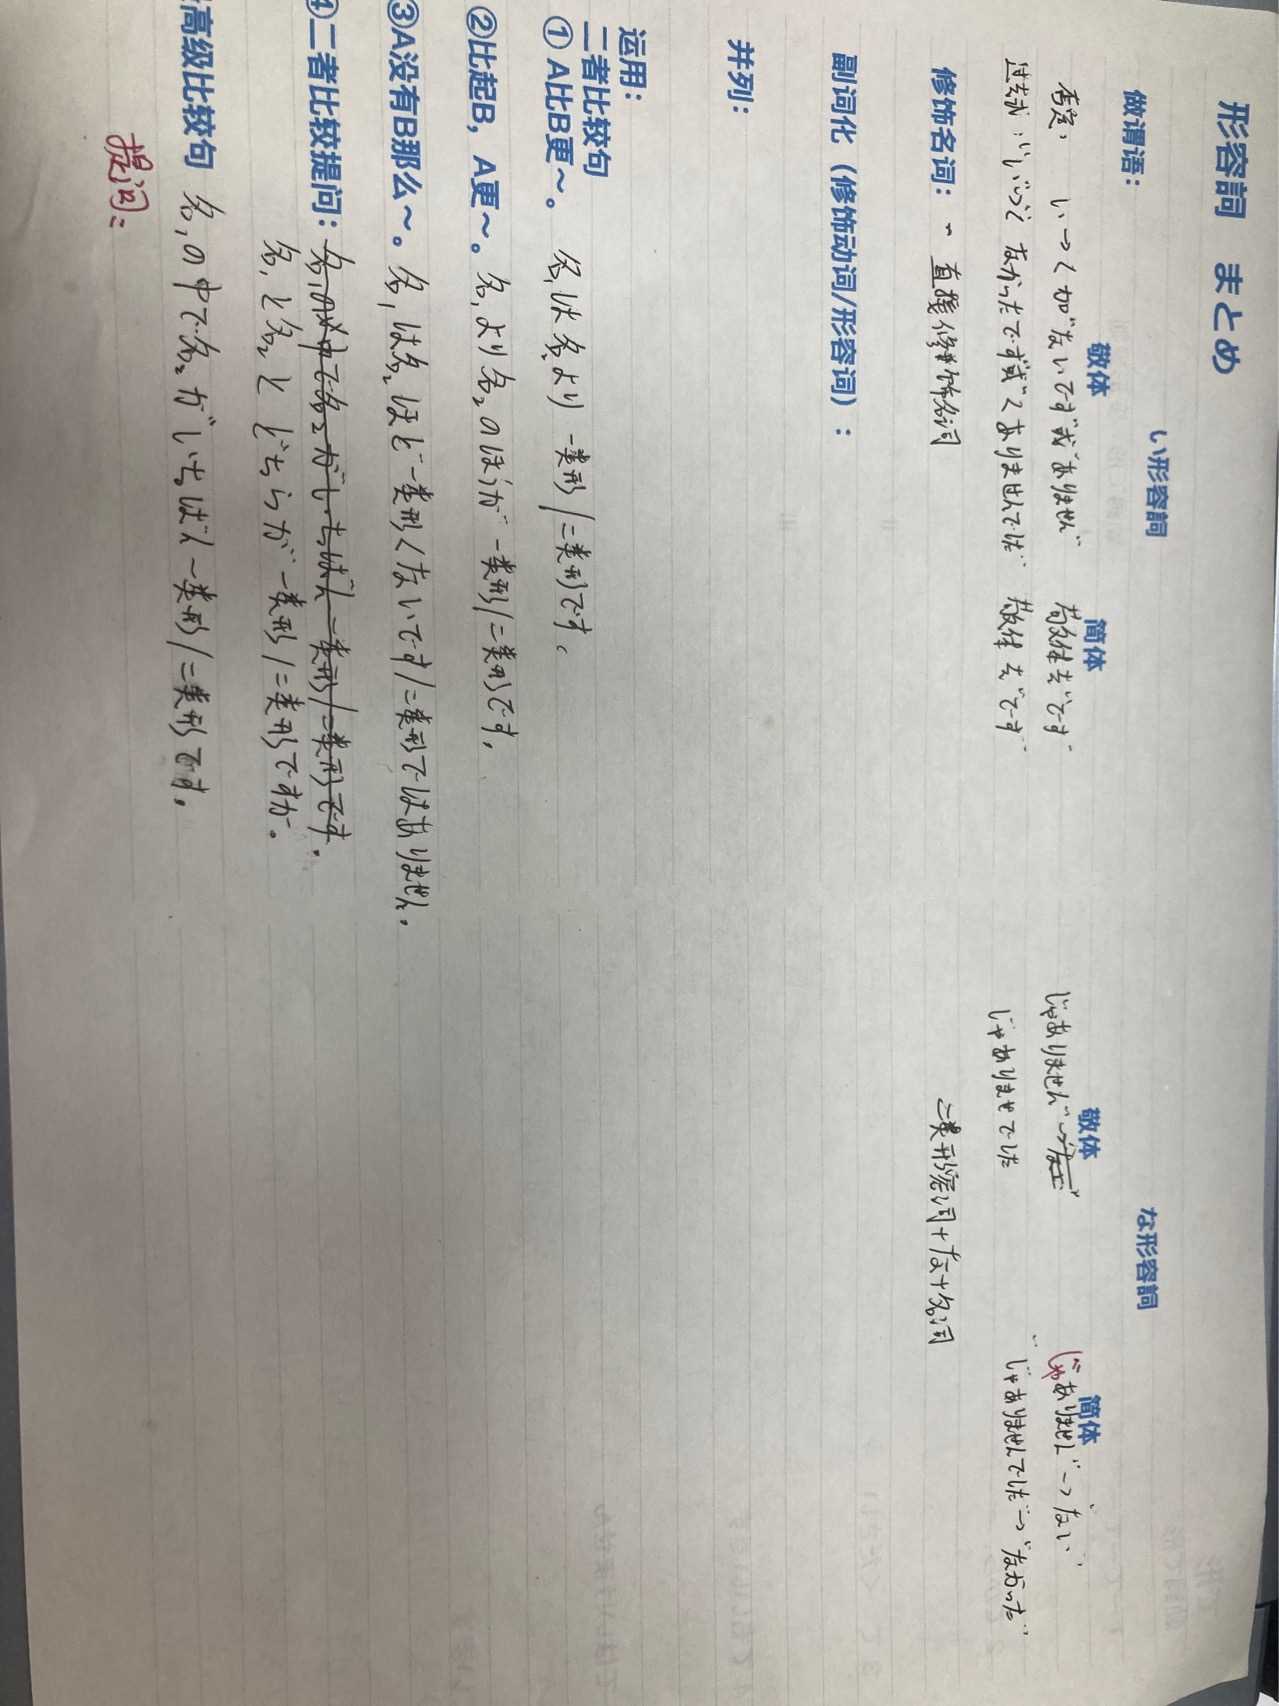 形容詞 まとめ
い形容詞 な形容詞
做谓语：
敬体 简体 敬体 简体
否定： い→く加"ないです"或"ありません" 敬体去"です" じゃありません じゃありません"→"ない"
过去式："い"→"く なかったです"或"くありませんでした" 敬体去"です" じゃありませでした "じゃありませんでした→"なかった"
修饰名词： 一 直接修饰名词 二类形容词+な+名词
副词化（修饰动词/形容词）：
并列：
运用：
二者比较句
① A比B更～。 名₁は名₂より 一类形/二类形です。
②比起B，A更～。 名₁より名₂のほうが 一类形/二类形です。
③A没有B那么～。 名₁は名₂ほど一类形くないです/二类形ではありません。
④二者比较提问： 名₁の中で名₂がいちばん 一类形/二类形です。
名₁と名₂と どちらが 一类形/二类形ですか。
高级比较句 名₁の中で名₂がいちばん一类形/二类形です。
提问：